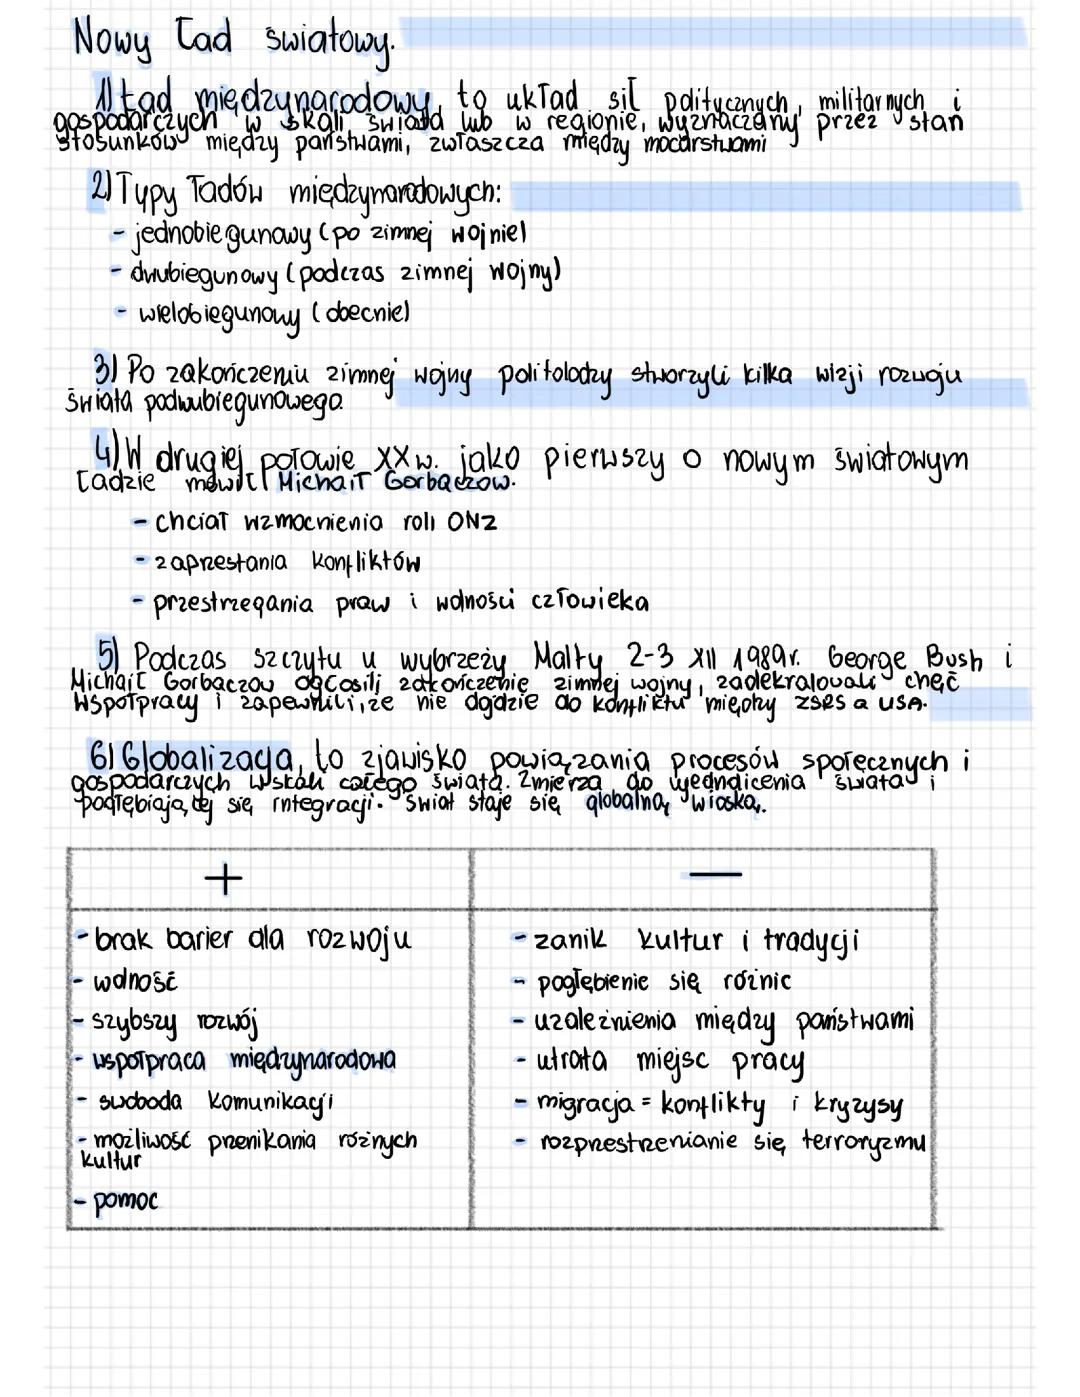 Nowy Ład światowy.
1) Ład międzynarodowy, to układ sił politycznych, militarnych i
gospodarczych w skali świata lub w regionie, wyznaczany przez stan
stosunków między państwami, zwłaszcza między mocarstwami
2) Typy ładów międzynarodowych:
- jednobiegunowy (po zimnej wojnie)
- dwubiegunowy (podczas zimnej wojny)
- wielobiegunowy (obecnie)
3) Po zakończeniu zimnej wojny politolodzy stworzyli kilka wizji rozwoju
świata podwubiegunowego.
4) W drugiej połowie XX w. jako pierwszy o nowym światowym
ładzie mówił Michaił Gorbaczow.
- chciał wzmocnienia roli ONZ
- zaprestania konfliktów
- przestrzegania praw i wolności człowieka
5) Podczas szczytu u wybrzeży Malty 2-3 XII 1989r. George Bush i
Michaił Gorbaczow ogłosili zakończenie zimnej wojny, zadekralowali chęć
współpracy i zapewnili, że nie dojdzie do konfliktu między ZSRS a USA.
6) Globalizacja, to zjawisko powiązania procesów społecznych i
gospodarczych w skali całego świata. Zmierza do ujednolicenia świata i
pogłębiającej się integracji. Świat staje się globalną wioską.
+ —
- brak barier dla rozwoju
- wolność
- szybszy rozwój
- współpraca międzynarodowa
- swoboda komunikacji
- możliwość przenikania różnych
kultur
- pomoc
- zanik kultur i tradycji
- pogłębienie się różnic
- uzależnienia między państwami
- utrata miejsc pracy
- migracja = konflikty i kryzysy
- rozprzestrzenianie się terroryzmu